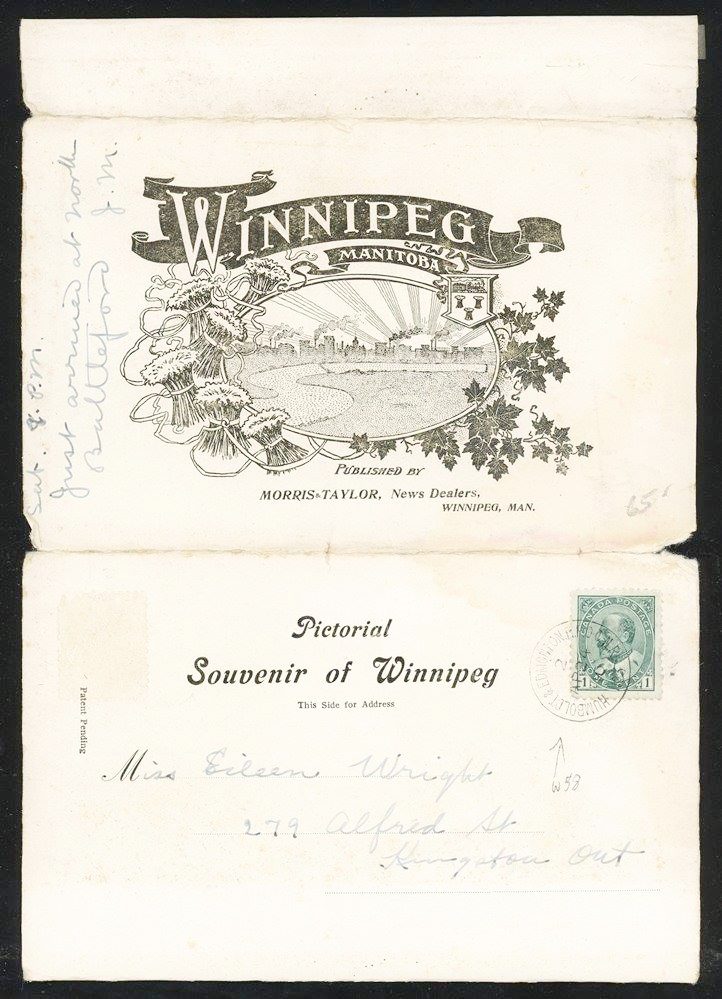 WINNIPEG
MANITOBA
PUBLISHED BY
MORRIS & TAYLOR, News Dealers,
WINNIPEG, MAN.
Sat. 8. P.M.
Just arrived at North
Battleford J.M.
65
Pictorial
Souvenir of Winnipeg
This Side for Address
Patent Pending
CANADA POSTAGE
1 ONE CENT 1
HUMBOLDT & EDMONTON
W58
Miss Eileen Wright
279 Alfred St
Kingston Ont